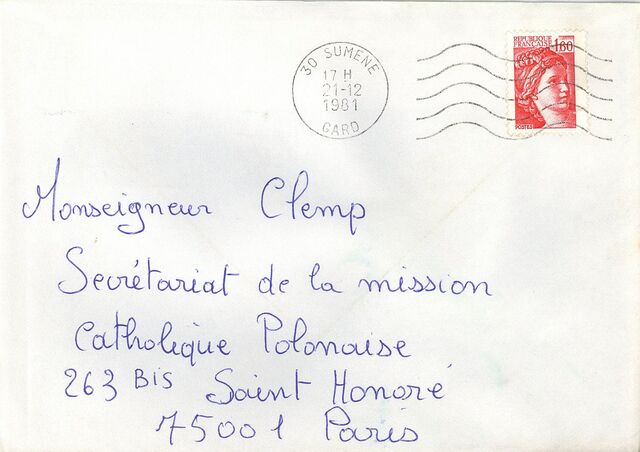 30 SUMENE
17 H
21-12
1981
GARD
REPUBLIQUE
FRANÇAISE 1,60
POSTES
Monseigneur Clemp
Secrétariat de la mission
Catholique Polonaise
263 Bis Saint Honoré
75001 Paris